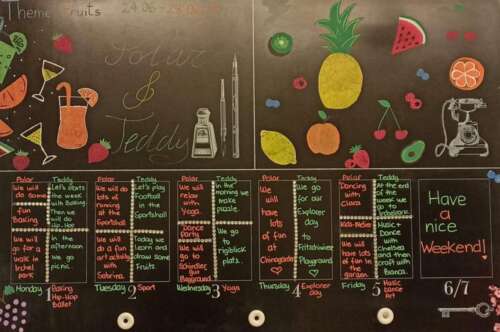 Theme: Fruits
24.06
Polar
&
Teddy
Polar
We will
do some
fun
Baking.
We will
go for a
walk in
Irchel
park
Teddy
Let's start
the week
with Baking
Then we
will do
Hip-Hop
In the
afternoon
we go
picnic.
Polar
We will do
lots of
running
at the
Sportshall
We will
do a fun
art activity
with
Sabrina.
Teddy
Let's play
Football
in the
Sportshall
Today we
learn and
draw some
fruits
Polar
We will
relax
with
yoga.
Dance
Party
We will
go to
Schindler
Gut
Playground
Teddy
In the
morning we
make
puzzle.
We go
to
rigiblick
platz.
Polar
We
will
have
lots
of fun
at
Chinagarten
Teddy
We go
for our
Explorer
day
to
Fritschiwiese
Playground
Polar
Dancing
with
Clara
We will
have lots
of fun
in the
garden.
Teddy
At the
end of
the week
we go to
Music+
Dance with
Chelsea
and then
craft with
Bianca.
Have
a
nice
Weekend!
Monday 1 Baking Hip-Hop Ballet
Tuesday 2 Sport
Wednesday 3 Yoga
Thursday 4 Explorer day
Friday 5 Music Dance Art
6/7